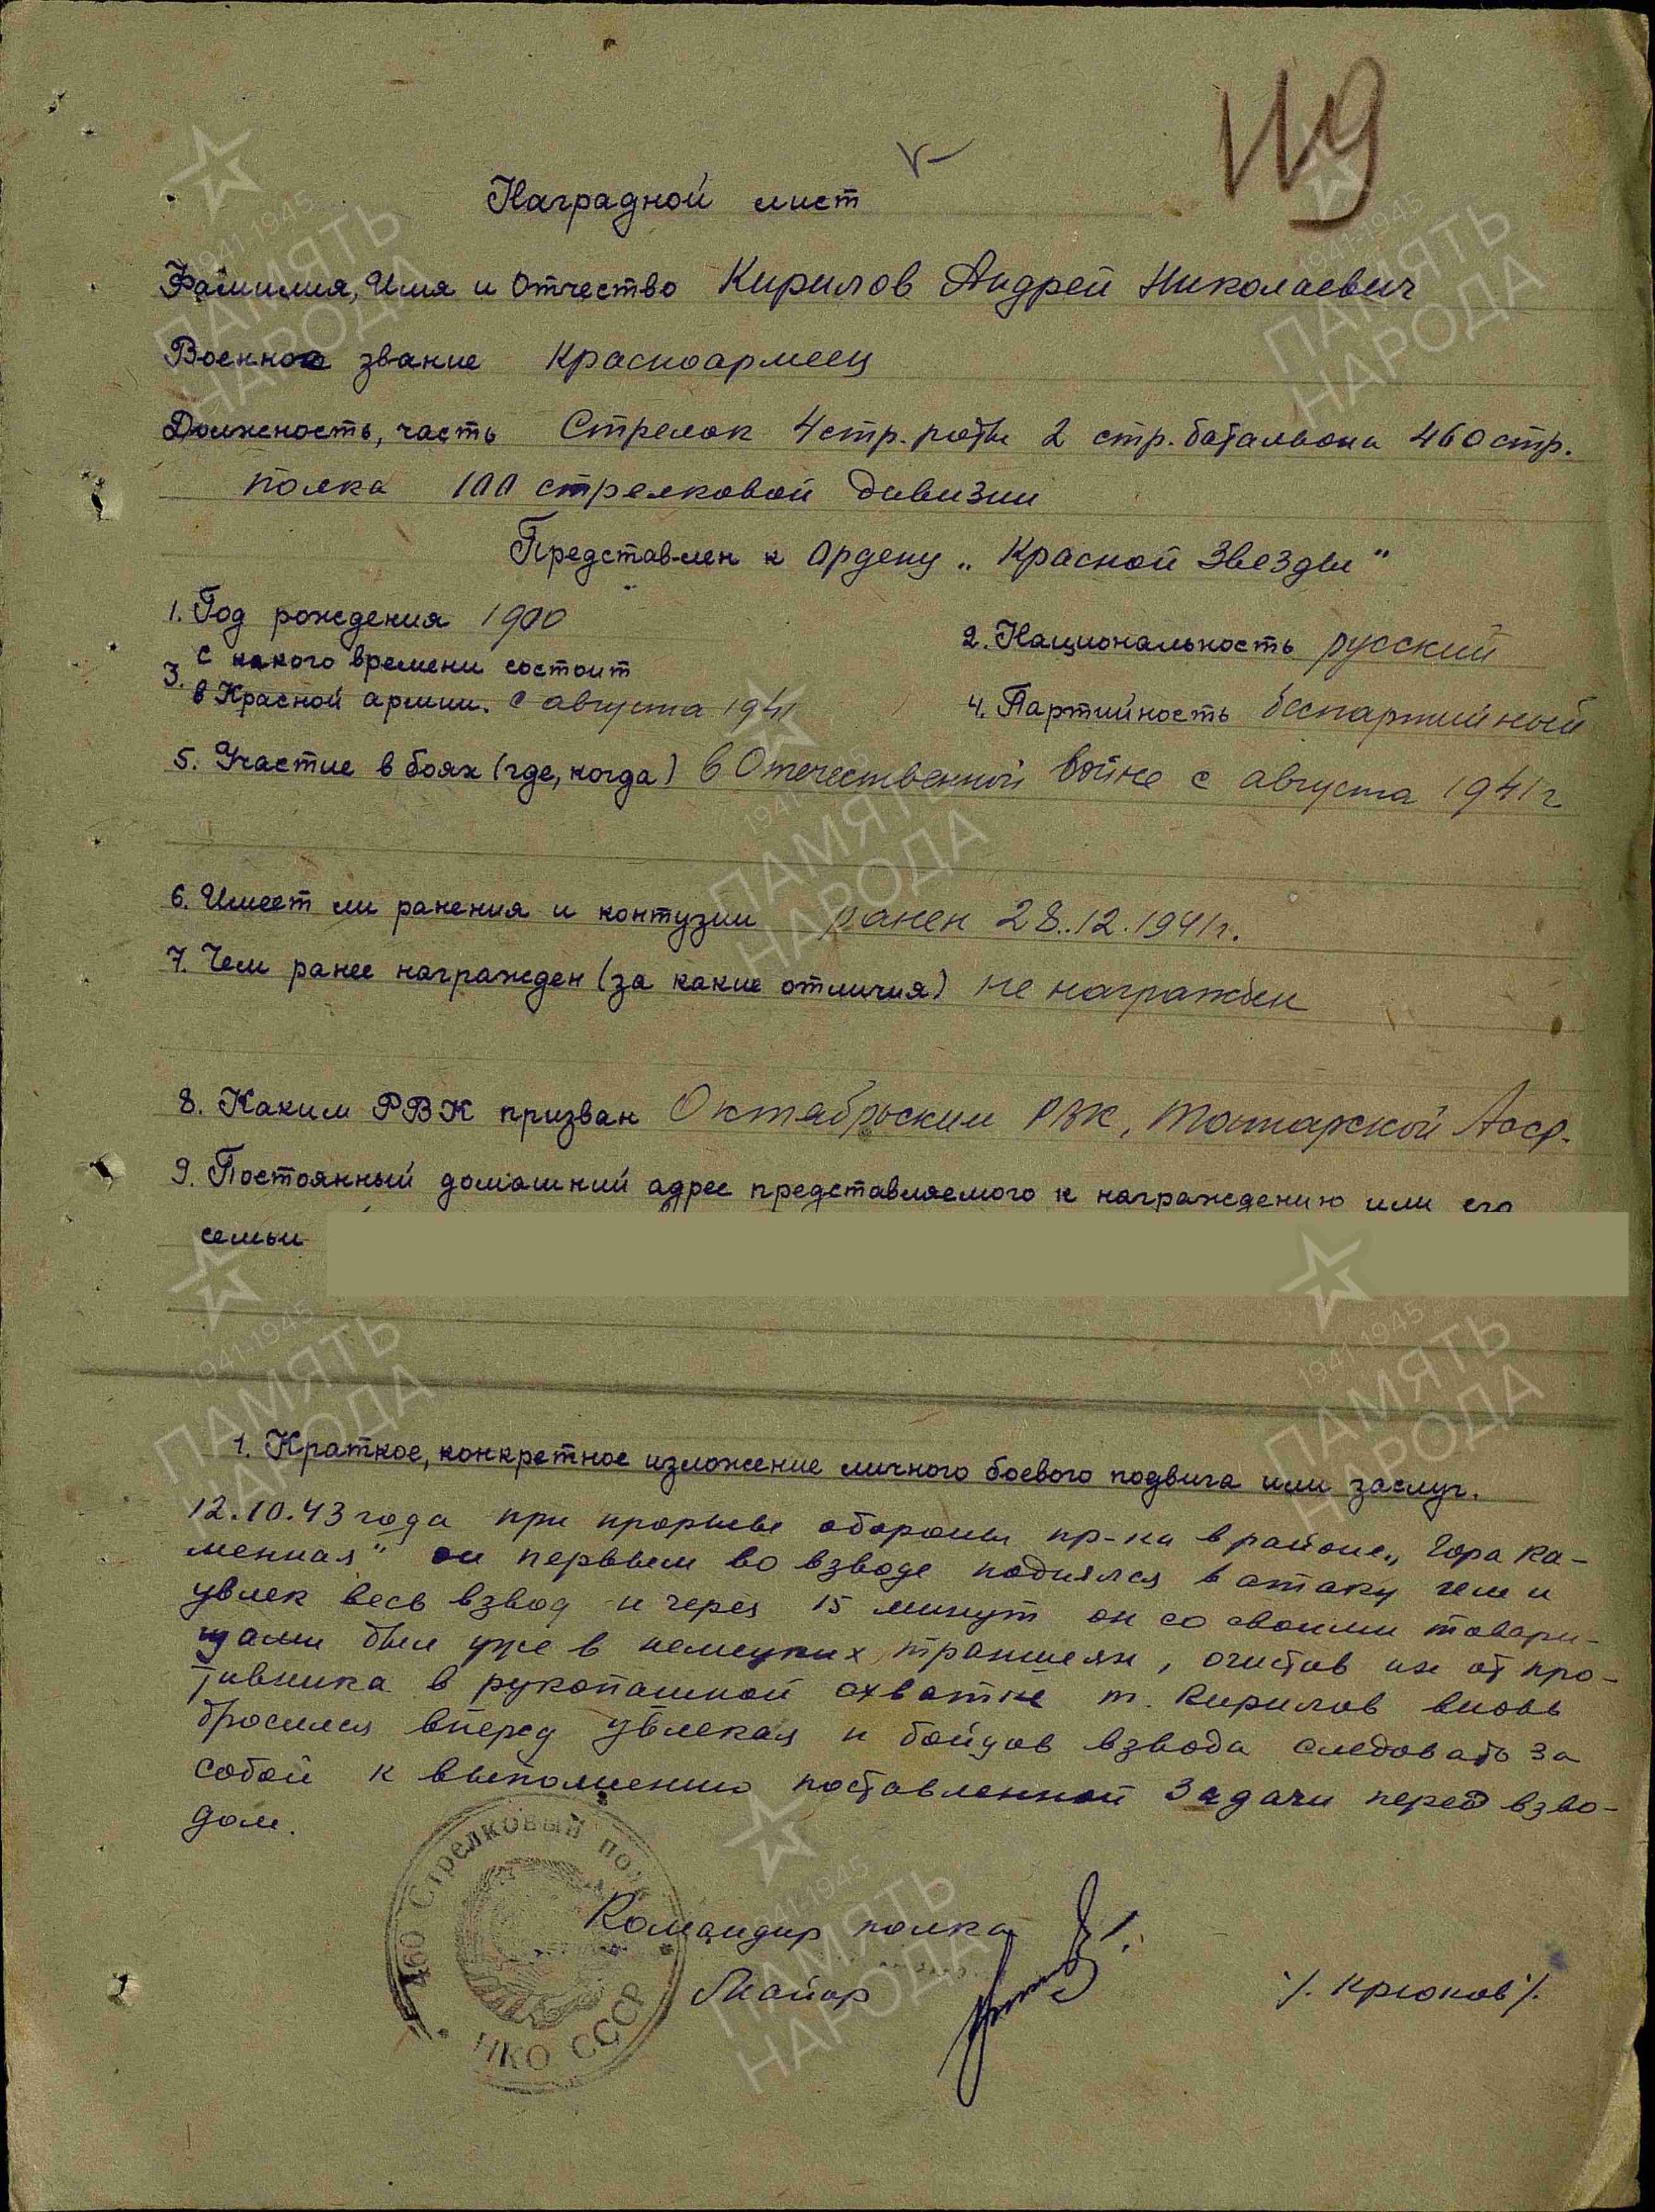 119
Наградной лист
Фамилия, Имя и Отчество Кирилов Андрей Николаевич
Военное звание Красноармеец
Должность, часть Стрелок 4 стр. роты 2 стр. батальона 460 стр.
полка 100 стрелковой дивизии
Представлен к Ордену „Красной Звезды"
1. Год рождения 1900
2. Национальность русский
3. с какого времени состоит
в Красной армии. с августа 1941
4. Партийность беспартийный
5. Участие в боях (где, когда) в Отечественной войне с августа 1941 г
6. Имеет ли ранения и контузии ранен 28.12.1941 г.
7. Чем ранее награжден (за какие отличия) не награжден
8. Каким РВК призван Октябрьским РВК, Татарской Асср.
9. Постоянный домашний адрес представляемого к награждению или его
семьи
1. Краткое, конкретное изложение личного боевого подвига или заслуг.
12.10.43 года при прорыве обороны пр-ка в районе „Гора Ка-
менная" он первым во взводе поднялся в атаку чем и
увлек весь взвод и через 15 минут он со своими товари-
щами был уже в немецких траншеях, очистив их от про-
тивника в рукопашной схватке т. Кирилов вновь
бросился вперед увлекая и бойцов взвода следовать за
собой к выполнению поставленной задачи перед взво-
дом.
Командир полка
Майор /. Крюков /.
460 Стрелковый полк
НКО СССР
1941-1945
ПАМЯТЬ
НАРОДА
1941-1945
ПАМЯТЬ
НАРОДА
1941-1945
ПАМЯТЬ
НАРОДА
1941-1945
ПАМЯТЬ
НАРОДА
1941-1945
ПАМЯТЬ
НАРОДА
1941-1945
ПАМЯТЬ
НАРОДА